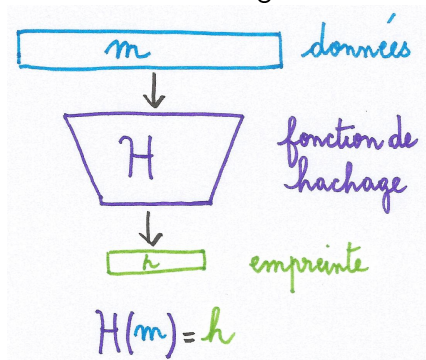 m données
H fonction de
hachage
h empreinte
H(m)=h